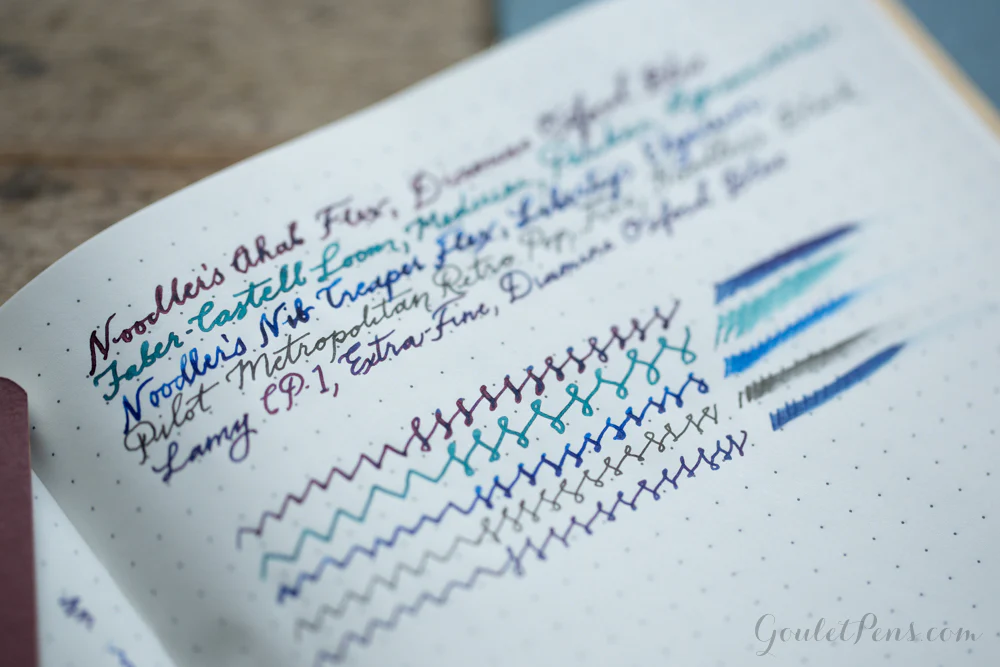 Noodler's Ahab Flex, Diamine Oxford Blue
Faber-Castell Loom, Medium,
Noodler's Nib Creaper Flex, Liberty's Elysium
Pilot Metropolitan Retro Pop, Fine,
Lamy CP.1, Extra-Fine, Diamine Oxford Blue
GouletPens.com